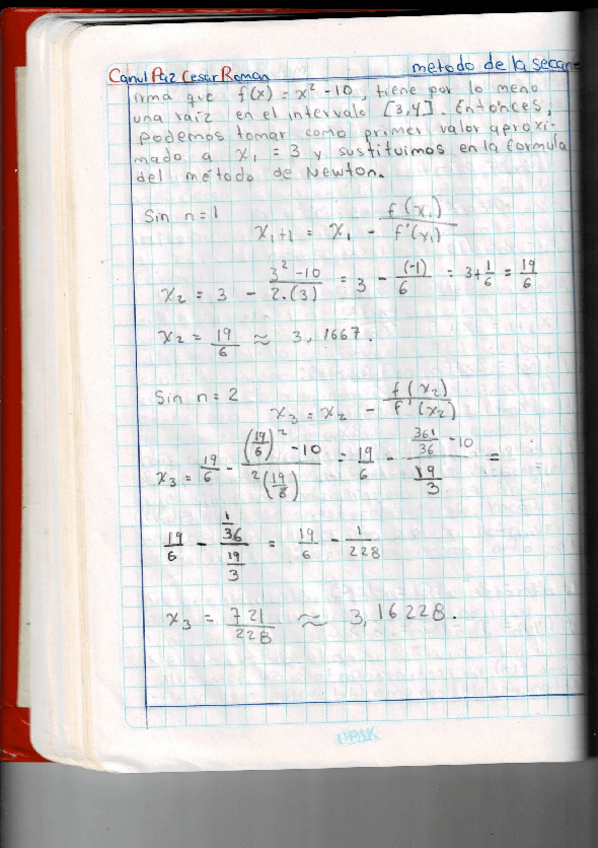 Canul Paz Cesar Roman metodo de la secan
irma que f(x) = x² - 10, tiene por lo meno
una raiz en el intervalo [3,4]. Entonces,
podemos tomar como primer valor aproxi-
mado a x₁ = 3 y sustituimos en la formula
del método de Newton.
Sin n=1
x₁+1 = x₁ - f(x₁)/f'(x₁)
x₂ = 3 - (3² - 10)/(2.(3)) = 3 - (-1)/6 = 3 + 1/6 = 19/6
x₂ = 19/6 ≈ 3,1667.
Sin n=2
x₃ = x₂ - f(x₂)/f'(x₂)
x₃ = 19/6 - ((19/6)² - 10)/(2(19/6)) = 19/6 - (361/36 - 10)/(19/3) =
19/6 - (1/36)/(19/3) = 19/6 - 1/228
x₃ = 721/228 ≈ 3,16228.